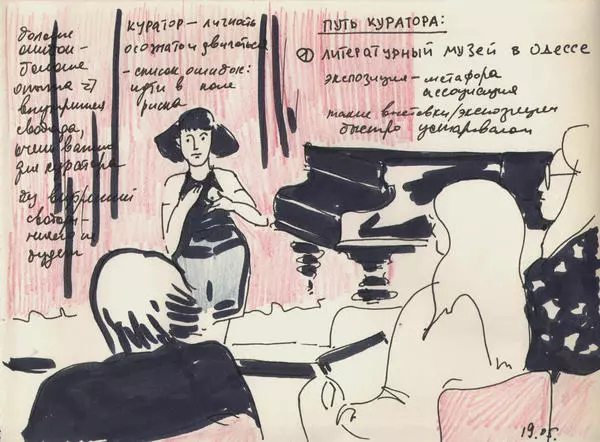 больше
ошибок –
больше
опыта =>
внутренняя
свобода,
очень важно
для куратора
без внутренней
свободы –
ничего не
будет
куратор – личность
осознато и двигаться
– список ошибок:
идти в поле
риска
ПУТЬ КУРАТОРА:
① ЛИТЕРАТУРНЫЙ МУЗЕЙ В ОДЕССЕ
экспозиция – метафора
ассоциация
такие выставки/экспозиции
быстро устаревают
19.05.